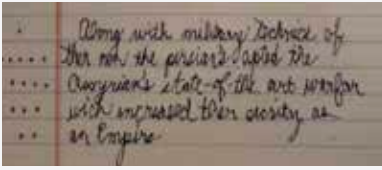 Along with military technice of
ther non the persian's apted the
Assyrian's state-of-the art warfar
with increased ther
an Empire